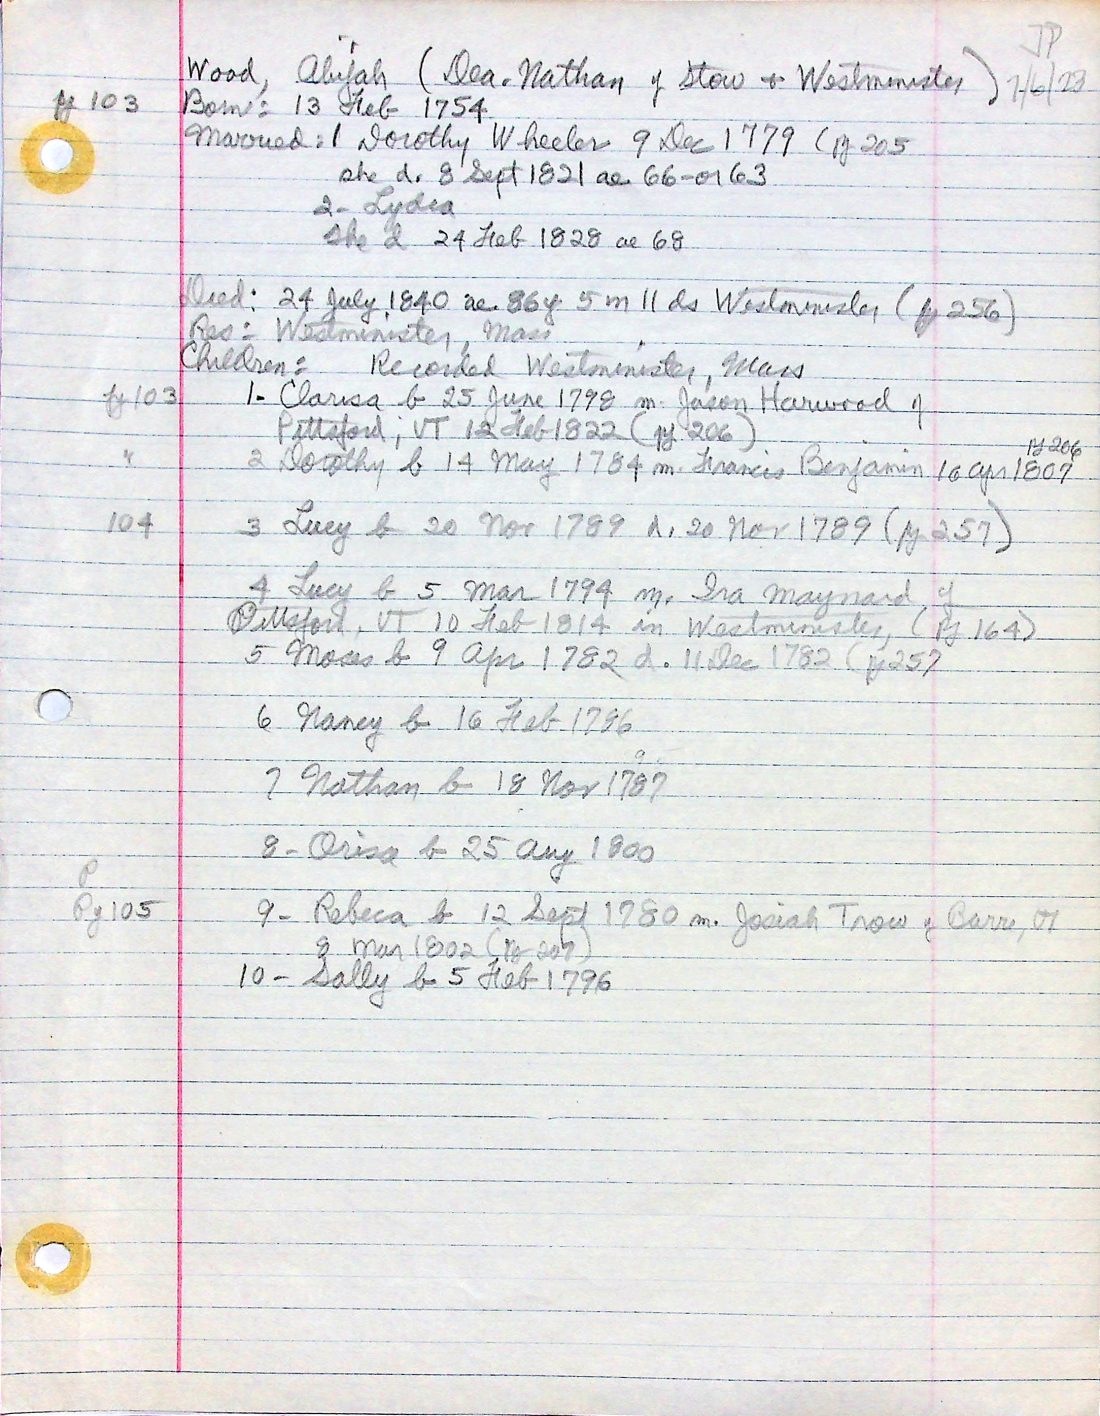 JP
Wood, Abijah (Dea. Nathan of Stow + Westminister) 7/6/23
pg 103 Born: 13 Feb 1754
Married: 1 Dorothy Wheeler 9 Dec 1779 (pg 205
she d. 8 Sept 1821 ae. 66-or 63
2- Lydia
she d 24 Feb 1828 ae 68
Died: 24 July, 1840 ae. 86y 5 m 11 ds Westminister (pg 256)
Res: Westminister, Mass
Children: Recorded Westminister, Mass
pg 103 1- Clarisa b 25 June 1798 m. Jason Harwood of
Pittsford, VT 12 Feb 1822 (pg 206)
pg 206
" 2 Dorothy b 14 May 1784 m. Francis Benjamin 16 Apr 1807
104 3 Lucy b 20 Nov 1789 d. 20 Nov 1789 (pg 257)
4 Lucy b 5 Mar 1794 m. Ira Maynard of
Pittsford, VT 10 Feb 1814 in Westminister, (pg 164)
5 Moses b 9 Apr 1782 d. 11 Dec 1782 (pg 257
6 Nancy b 16 Feb 1786
7 Nathan b 18 Nov 1787
8- Orisa b 25 Aug 1800
P
Pg 105 9- Rebeca b 12 Sept 1780 m. Josiah Trow of Barre, VT
8 Mar 1802 (pg 207)
10- Sally b 5 Feb 1796